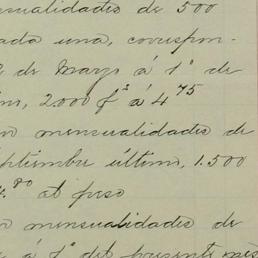 nsualidades de 500
ada una, correspon-
de Marzo á 1º de
2.000 f² á 4 75
n mensualidades de
eptiembre último, 1.500
.80 al peso
n mensualidades de
á 1º del presente mes